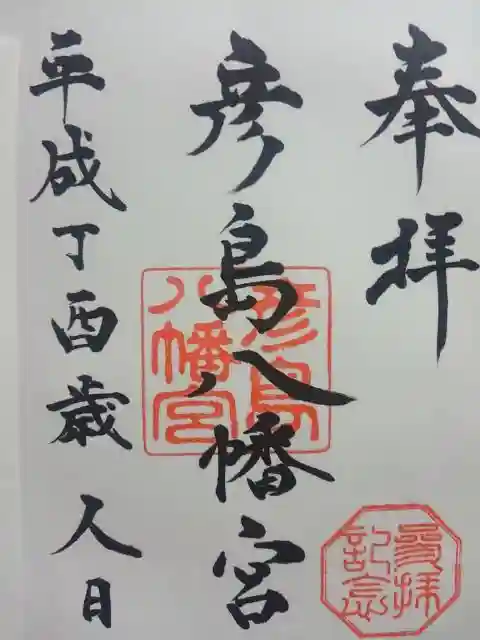 奉拝
彦島八幡宮
彦島八幡宮
平成丁酉歳 人日
參拝記念